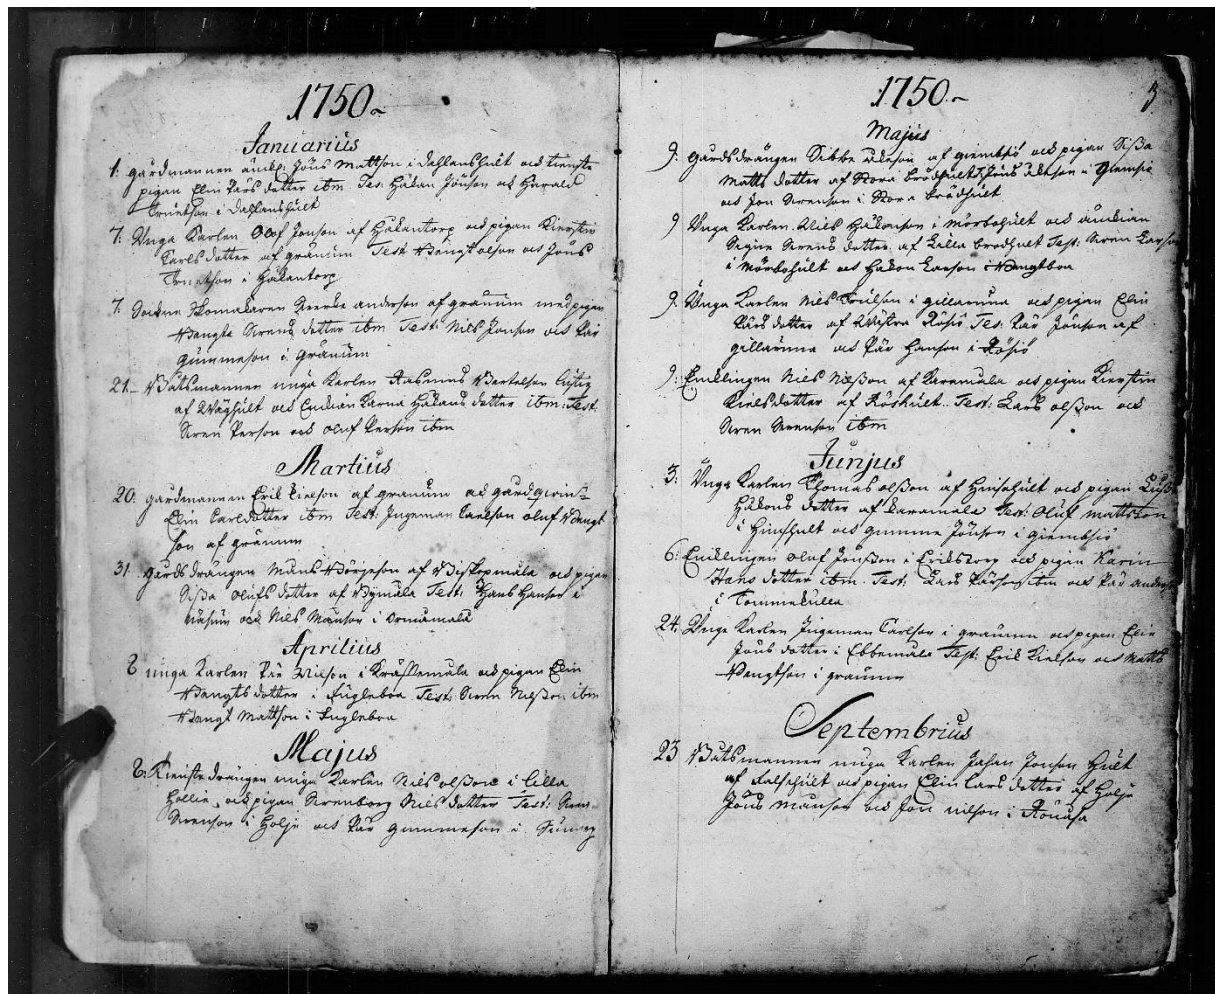 1750
Januarius
1. gårdmannen Jöns Mattson i dahlanshult och tienste
pigan Elin Pärs dotter ibm Tes: Håkan Jönson och Harald
Truetson i dahlanshult
7. Unga Karlen Olof Jonson af Håkantorp och pigan Kierstin
Carls dotter af granum Test Bengt olson och Jöns
Truetson i Håkantorp
7. Socken anderson af granum med pigan
Bengta Svens dotter ibm Test: Nils Jonson och Pär
gummeson i granum
21. Båtsmannen unga Karlen Rasmus Bertelson
af och Enkian Karna Håkans dotter ibm: Test:
Sven Person och oluf Person ibm
Martius
20. gårdmannen Erik af granum och
Elin Carlsdotter ibm Test: Ingeman Carlson oluf Bengt
son af granum
31. gårds drängen Måns Börjeson af Biskopmåla och pigan
Sissa Olufs dotter af Bymåla Test: Hans Hanson i
och Nils Månson i
Aprilius
8 unga Karlen Pär Nilson i och pigan Elin
Bengts dotter i Ingleboa Test: Sven ibm
Bengt Mattson i Ingleboa
Majus
8. Tienste drängen unga Karlen Nils olsson i Lilla
Hollie, och pigan Svenborg Nils dotter Test: Sven
Svenson i Holje och Pär gummeson i
1750.
3
Majus
9. gårdsdrängen Sibbe af giembsiö och pigan Sissa
Matts dotter af Stora brödhult Jöns i Giemsiö
och Jon Svenson i Stora brödhult
9 Unga Karlen Nils Håkonson i Mörbohult och änkian
Signe Svens dotter af Lilla brodhult Test: Sven Larson
i Mörbohult och Håkon Larson i Bengtboa
9. Unga Karlen Nils Trulson i gillaruna och pigan Elin
Pärs dotter af Wästra Rösiö Tes: Pär Jönson af
gillaruna och Pär Hanson i Rösiö
9. Enklingen Nils af Karamåla och pigan Kierstin
Nielsdotter af Röshult. Test: Lars olsson och
Sven Svenson ibm
Junjus
3: Unga Karlen Thomas olsson af och pigan
Håkons dotter af karamåla Test: Oluf mattsson
i och gumme Jönson i giembsiö
6: Enklingen oluf Jönsson i Erikstorp och pigan Karin
Hans dotter ibm Test: Lars Pärson ibm och Pär anders
i Tommekulla
24. Unga Karlen Ingeman Carlson i granum och pigan Elin
Jöns dotter i Ebbemåla Test: Erik och Matts
Bengtson i granum
Septembrius
23 Båtsmannen unga Karlen Johan Jonson Hult
af Falsehult och pigan Elin Lars dotter af Holje
Jöns Månson och Jon nilson i